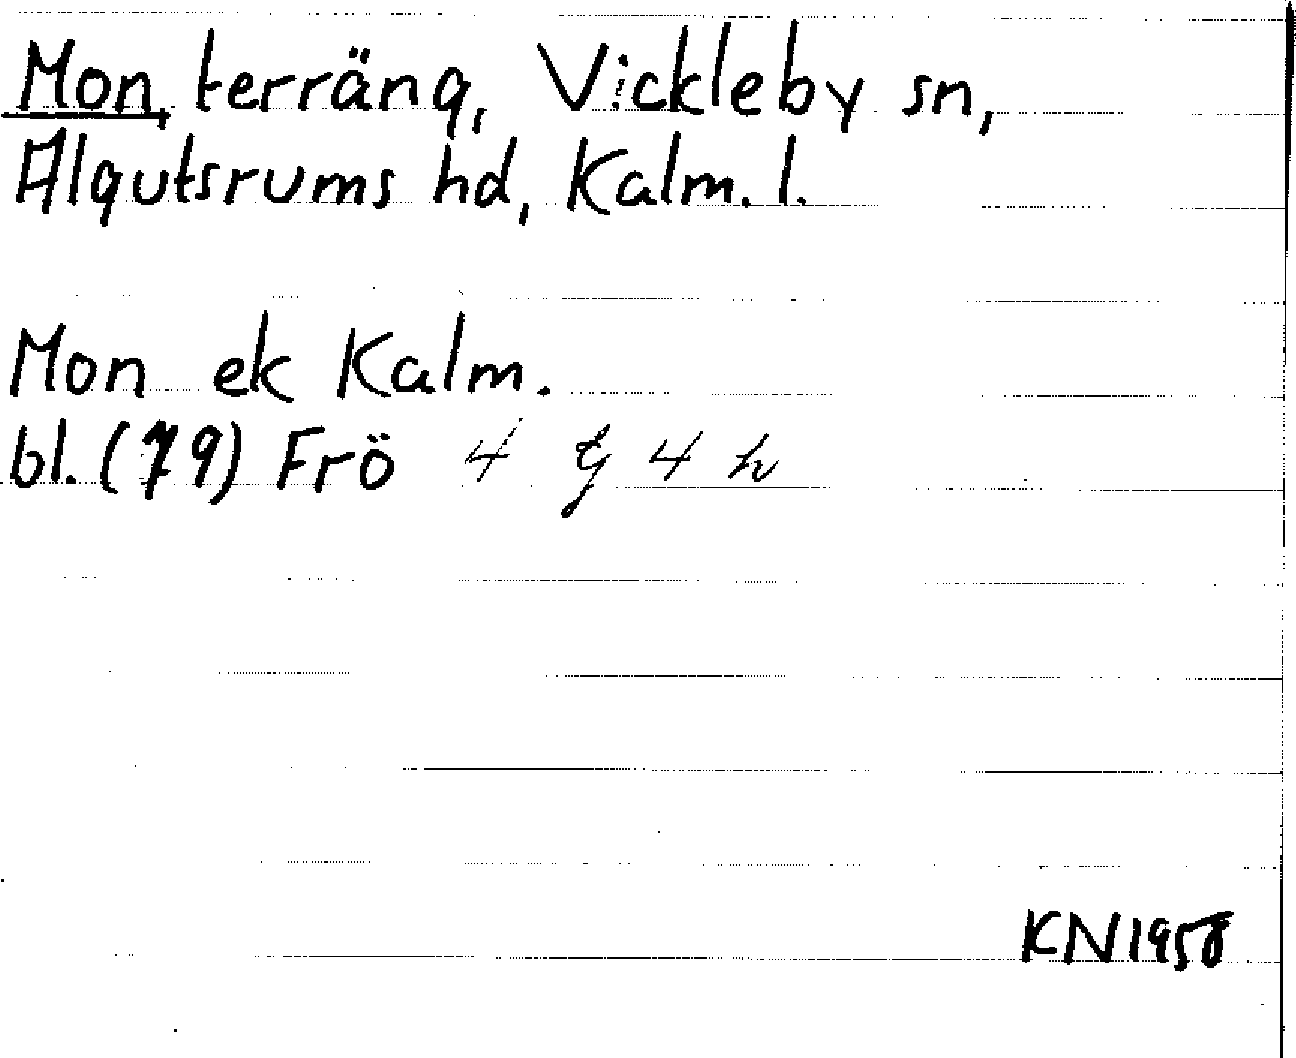 Mon, terräng, Vickleby sn,
Algutsrums hd, Kalm. l.
Mon ek Kalm.
bl. (79) Frö 4 G 4 h
KN 1958